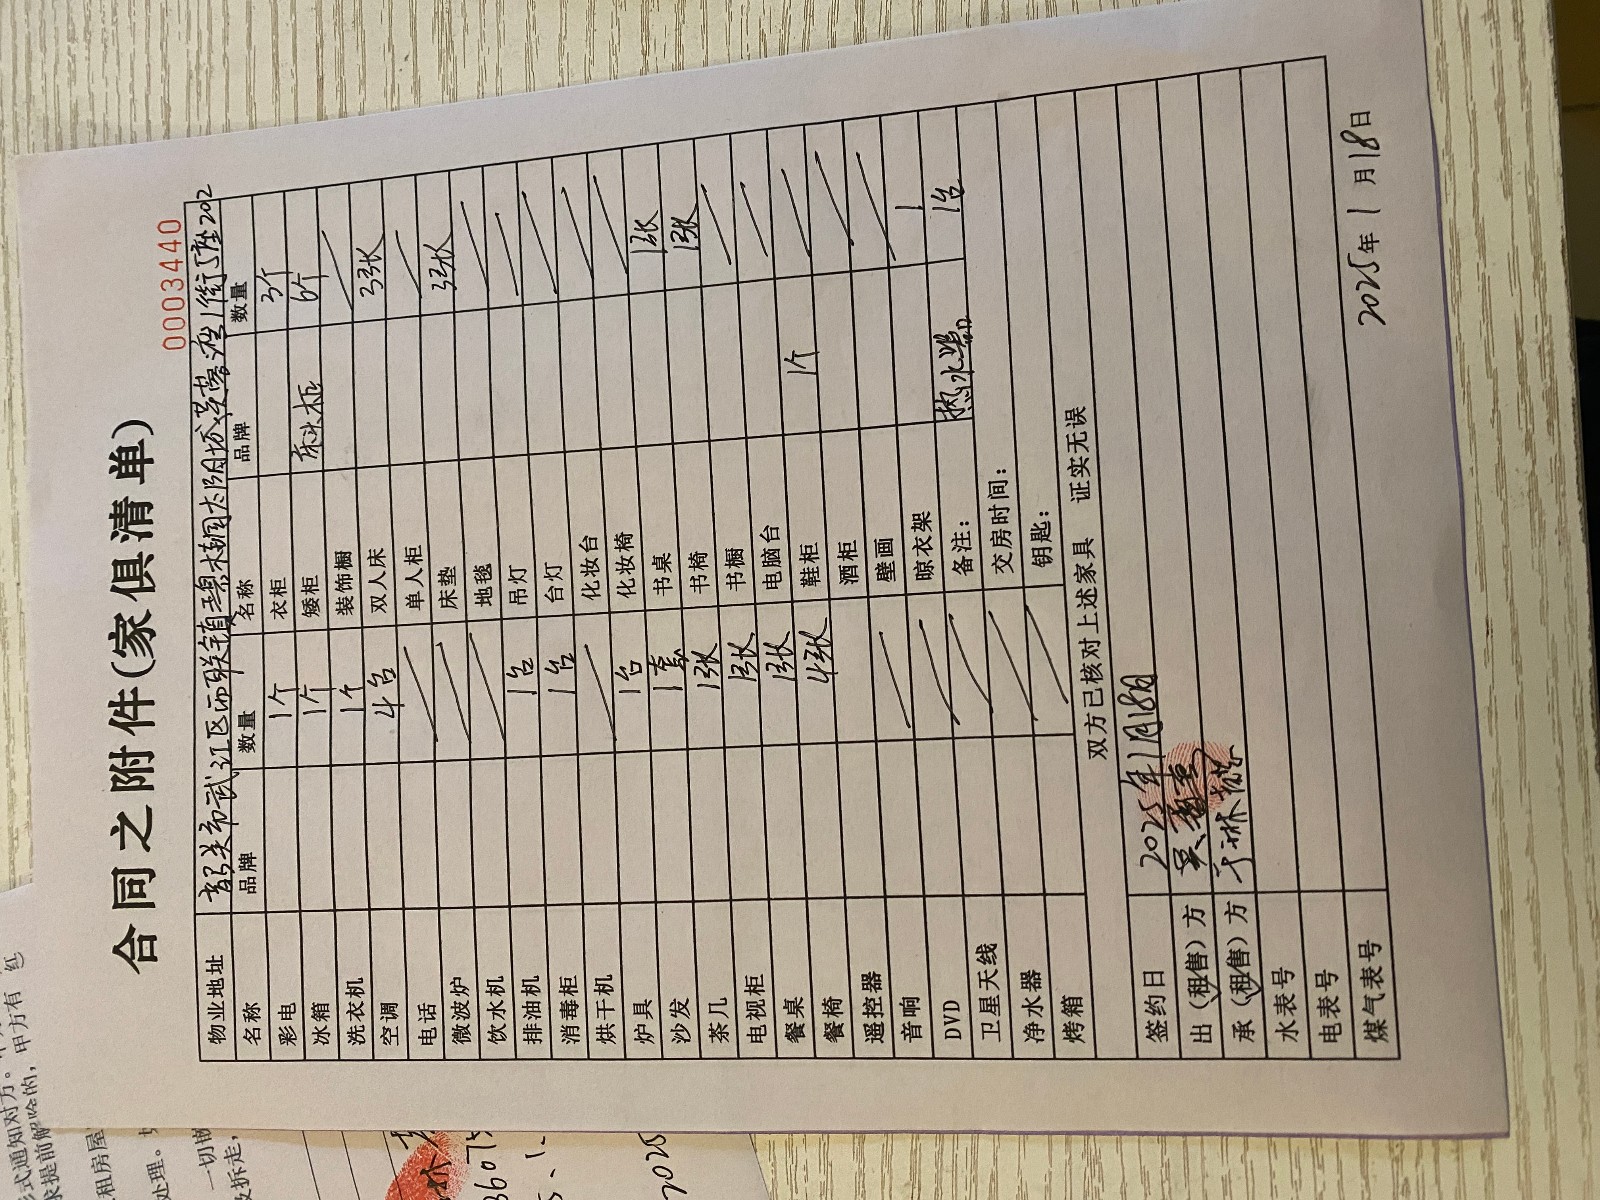 0003440
合同之附件(家俱清单)
物业地址 韶关市武江区西联镇碧桂园太阳城芙蓉 1街 座202
名称 品牌 数量 名称 品牌 数量
彩电 1个 衣柜 3个
冰箱 1个 矮柜 床头柜 6个
洗衣机 1个 装饰橱
空调 4台 双人床 3张
电话 单人柜
微波炉 床垫 3张
饮水机 地毯
排油机 1台 吊灯
消毒柜 1台 台灯
烘干机 化妆台
炉具 1台 化妆椅
沙发 1套 书桌 1张
茶几 1张 书椅 1张
电视柜 1张 书橱
餐桌 1张 电脑台
餐椅 4张 鞋柜 1个
遥控器 酒柜
音响 壁画
DVD 晾衣架 1
卫星天线 备注: 热水器 1台
净水器 交房时间:
烤箱 钥匙:
双方已核对上述家具 证实无误
签约日 2025年1月18日
出(租售)方
承(租售)方
水表号
电表号
煤气表号
2025年1月18日
形式通知对方。
求提前解除的,甲方有
租房屋
处理。
一切
拆走,
36075
2025